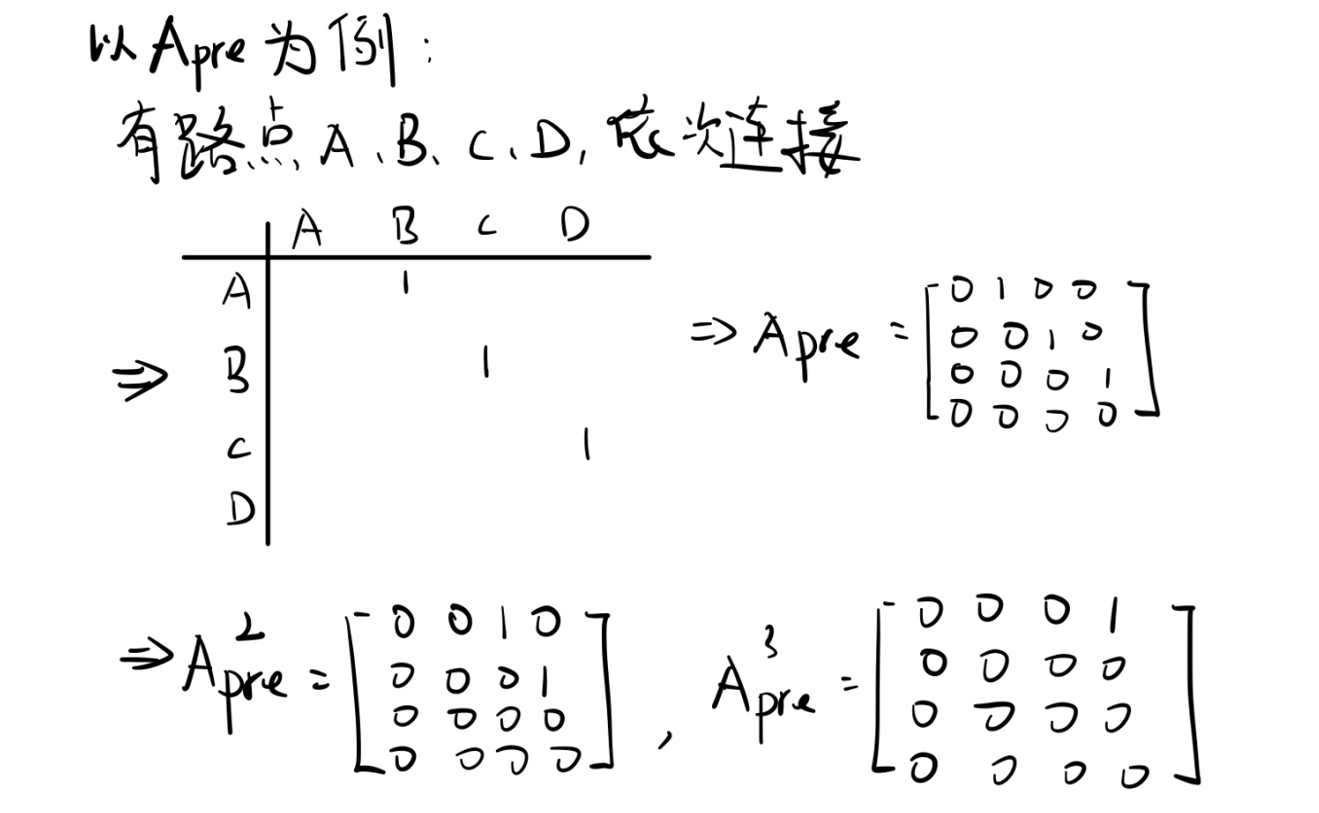 以Apre为例:
有路点A、B、C、D,依次连接
A B C D
A 1
B 1
C 1
D
⇒
⇒ Apre = [0 1 0 0
0 0 1 0
0 0 0 1
0 0 0 0]
⇒ A²pre = [0 0 1 0
0 0 0 1
0 0 0 0
0 0 0 0] ,
A³pre = [0 0 0 1
0 0 0 0
0 0 0 0
0 0 0 0]